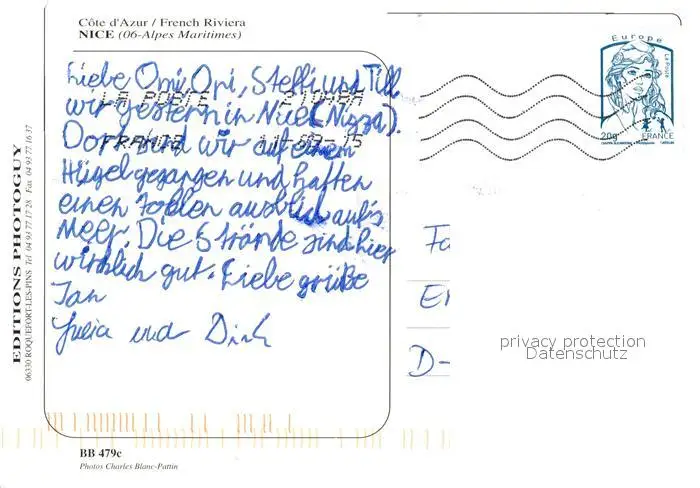 Côte d'Azur / French Riviera
NICE (06-Alpes Maritimes)
Liebe Omi, Opi, Steffi und Till
wir gestern in Nice (Nizza).
Dort sind wir auf einem
Hügel gegangen und hatten
einen tollen ausblick auf's
Meer. Die Strände sind hier
wirklich gut. Liebe grüße
Jan
Julia und Dirk
LA POSTE
FRANCE
Europe
La Poste
20g
FRANCE
Fa
D-
privacy protection
Datenschutz
EDITIONS PHOTOGUY
06330 ROQUEFORT-LES-PINS Tél 04 93 77 17 28 Fax 04 93 77 16 37
BB 479c
Photos Charles Blanc-Pattin